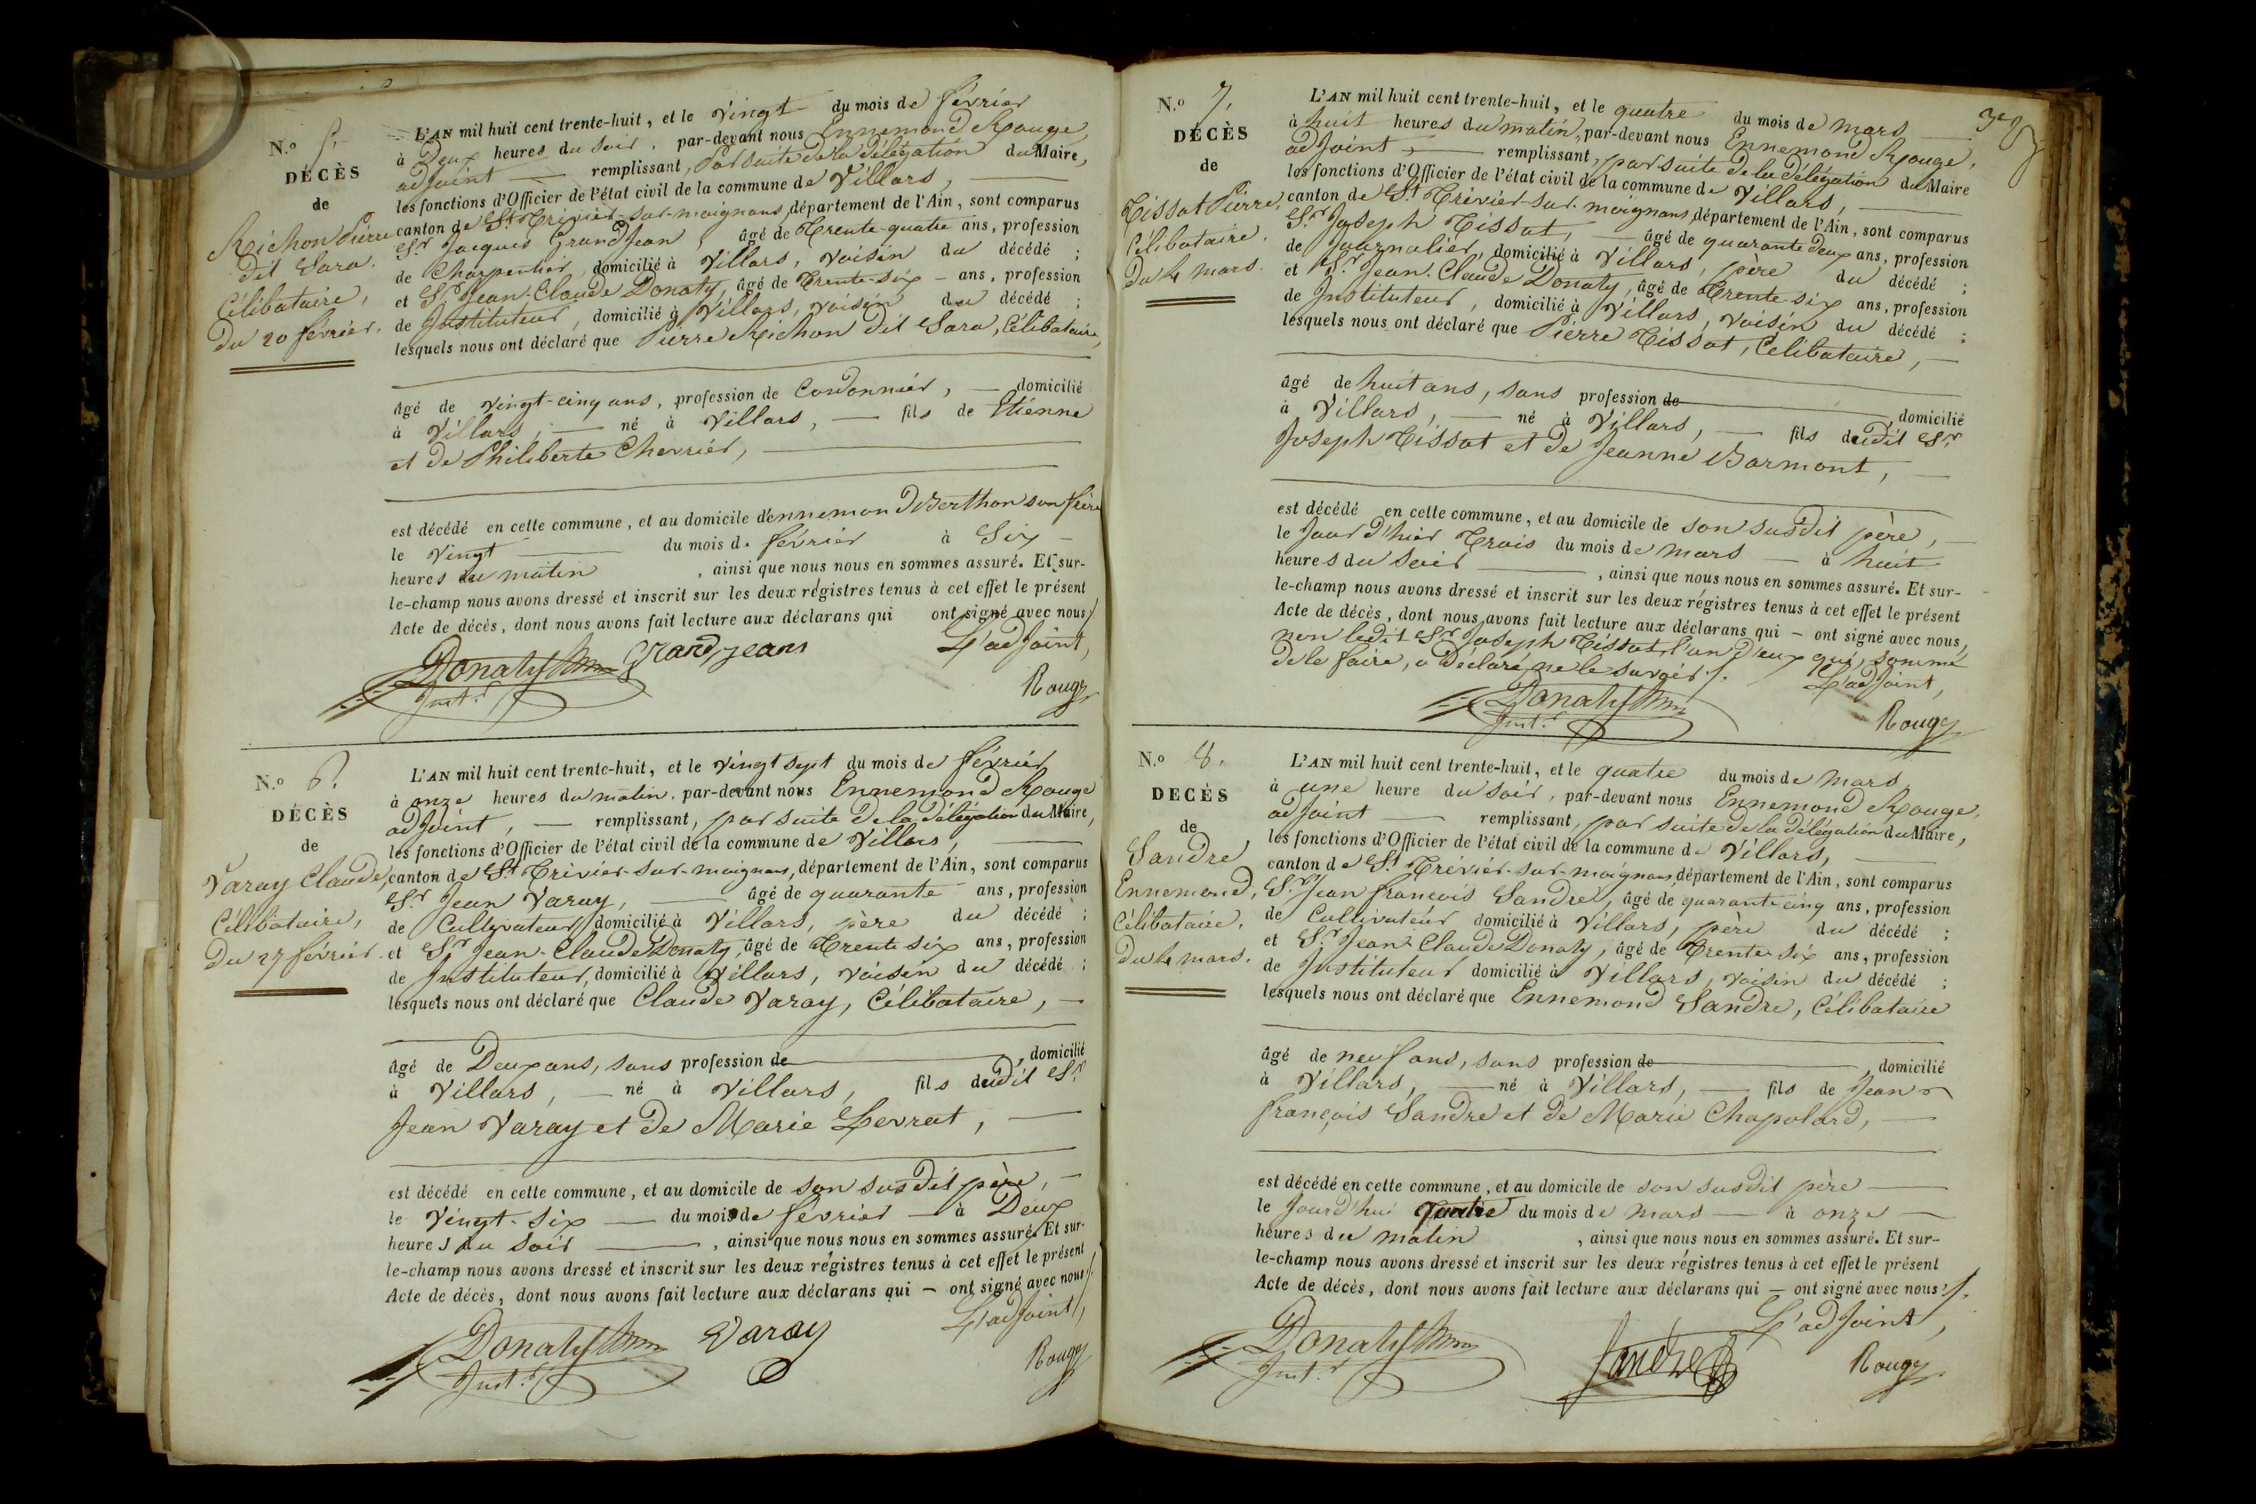 N.º 5.
DÉCÈS
de
Richon Pierre
dit Sara.
Célibataire,
Du 20 février.
L'AN mil huit cent trente-huit, et le vingt du mois de février
à Deux heures du soir, par-devant nous Ennemond Rouge,
adjoint remplissant, par suite de la délégation du Maire,
les fonctions d'Officier de l'état civil de la commune de Villars,
canton de St. Trivier-sur-moignans, département de l'Ain, sont comparus
Sr. Jacques GrandJean, âgé de Trente-quatre ans, profession
de Charpentier, domicilié à Villars, voisin du décédé ;
et Sr. Jean-Claude Donaty, âgé de Trente-six ans, profession
de Instituteur, domicilié à Villars, voisin du décédé ;
lesquels nous ont déclaré que Pierre Richon dit Sara, Célibataire,
âgé de vingt-cinq ans, profession de Cordonnier, domicilié
à Villars, né à Villars, fils de Etienne
et de Philiberte Chevrier,
est décédé en cette commune, et au domicile d'ennemon Berthon son frère
le vingt du mois de février à Six
heures du matin, ainsi que nous nous en sommes assuré. Et sur-
le-champ nous avons dressé et inscrit sur les deux régistres tenus à cet effet le présent
Acte de décès, dont nous avons fait lecture aux déclarans qui ont signé avec nous /.
Donaty Grandjean L'adjoint,
Inst.r Rouge
N.º 6.
DÉCÈS
de
Varay Claude,
Célibataire,
Du 27 février.
L'AN mil huit cent trente-huit, et le vingt sept du mois de février
à onze heures du matin, par-devant nous Ennemond Rouge
adjoint, remplissant, par suite de la délégation du Maire,
les fonctions d'Officier de l'état civil de la commune de Villars,
canton de St. Trivier-sur-moignans, département de l'Ain, sont comparus
Sr. Jean Varay, âgé de quarante ans, profession
de Cultivateur, domicilié à Villars, père du décédé ;
et Sr. Jean-Claude Donaty, âgé de Trente six ans, profession
de Instituteur, domicilié à Villars, voisin du décédé ;
lesquels nous ont déclaré que Claude Varay, Célibataire,
âgé de Deux ans, sans profession de domicilié
à Villars, né à Villars, fils dudit Sr.
Jean Varay et de Marie Levrat,
est décédé en cette commune, et au domicile de son susdit père,
le vingt-six du mois de février à Deux
heures du soir, ainsi que nous nous en sommes assuré. Et sur-
le-champ nous avons dressé et inscrit sur les deux régistres tenus à cet effet le présent
Acte de décès, dont nous avons fait lecture aux déclarans qui – ont signé avec nous /.
Donaty Varay L'adjoint,
Inst.r Rouge
N.º 7.
DÉCÈS
de
Tissot Pierre,
Célibataire.
Du 4 mars.
L'AN mil huit cent trente-huit, et le quatre du mois de mars
à huit heures du matin, par-devant nous Ennemond Rouge,
adjoint, remplissant, par suite de la délégation du Maire
les fonctions d'Officier de l'état civil de la commune de Villars,
canton de St. Trivier-sur-moignans, département de l'Ain, sont comparus
Sr. Joseph Tissot, âgé de quarante deux ans, profession
de Journalier, domicilié à Villars, père du décédé ;
et Sr. Jean-Claude Donaty, âgé de Trente-six ans, profession
de Instituteur, domicilié à Villars, voisin du décédé ;
lesquels nous ont déclaré que Pierre Tissot, Célibataire,
âgé de huit ans, sans profession de domicilié
à Villars, né à Villars, fils dudit Sr.
Joseph Tissot et de Jeanne Barmont,
est décédé en cette commune, et au domicile de son susdit père,
le Jour d'hier Trois du mois de mars à huit
heures du soir, ainsi que nous nous en sommes assuré. Et sur-
le-champ nous avons dressé et inscrit sur les deux régistres tenus à cet effet le présent
Acte de décès, dont nous avons fait lecture aux déclarans qui – ont signé avec nous,
non ledit Sr. Joseph Tissot, l'un d'eux qui, sommé
de le faire, a déclaré ne le savoir /. L'adjoint,
Donaty
Inst.r Rouge
N.º 8.
DECÈS
de
Sandre
Ennemond,
Célibataire.
Du 4 mars.
L'AN mil huit cent trente-huit, et le quatre du mois de mars
à une heure du soir, par-devant nous Ennemond Rouge,
adjoint remplissant, par suite de la délégation du Maire,
les fonctions d'Officier de l'état civil de la commune de Villars,
canton de St. Trivier-sur-moignans, département de l'Ain, sont comparus
Sr. Jean françois Sandre, âgé de quarante cinq ans, profession
de Cultivateur domicilié à Villars, père du décédé ;
et Sr. Jean-Claude Donaty, âgé de Trente-six ans, profession
de Instituteur domicilié à Villars, voisin du décédé ;
lesquels nous ont déclaré que Ennemond Sandre, Célibataire
âgé de neuf ans, sans profession de domicilié
à Villars, né à Villars, fils de Jean
françois Sandre et de Marie Chapolard,
est décédé en cette commune, et au domicile de son susdit père
le Jourd'hui quatre du mois de mars à onze
heures du matin, ainsi que nous nous en sommes assuré. Et sur-
le-champ nous avons dressé et inscrit sur les deux régistres tenus à cet effet le présent
Acte de décès, dont nous avons fait lecture aux déclarans qui – ont signé avec nous /.
L'adjoint,
Donaty Sandre Rouge
Inst.r